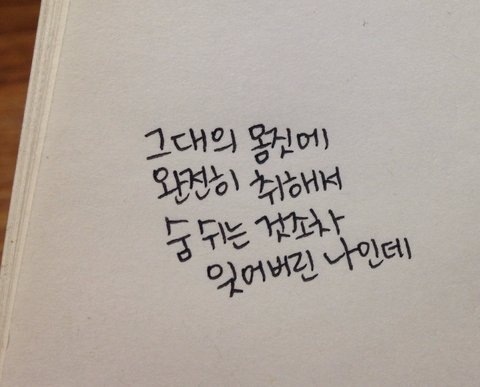 그대의 몸짓에
완전히 취해서
숨 쉬는 것조차
잊어버린 나인데